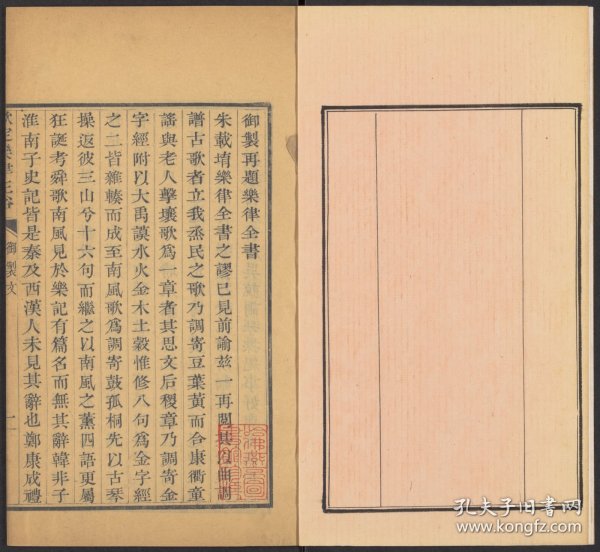 御製再題樂律全書
朱載堉樂律全書之謬已見前諭茲一再閱其曲調
譜古歌者立我烝民之歌乃調寄豆葉黃而合康衢童
謠與老人擊壤歌為一章者其思文后稷章乃調寄金
字經附以大禹謨水火金木土穀惟修八句為金字經
之二皆雜輳而成至南風歌為調寄鼓孤桐先以古琴
操返彼三山兮十六句而繼之以南風之薰四語更屬
狂誕考舜歌南風見於樂記有篇名而無其辭韓非子
淮南子史記皆是秦及西漢人未見其辭也鄭康成禮
御製文
一
孔夫子旧书网
www.kongfz.com